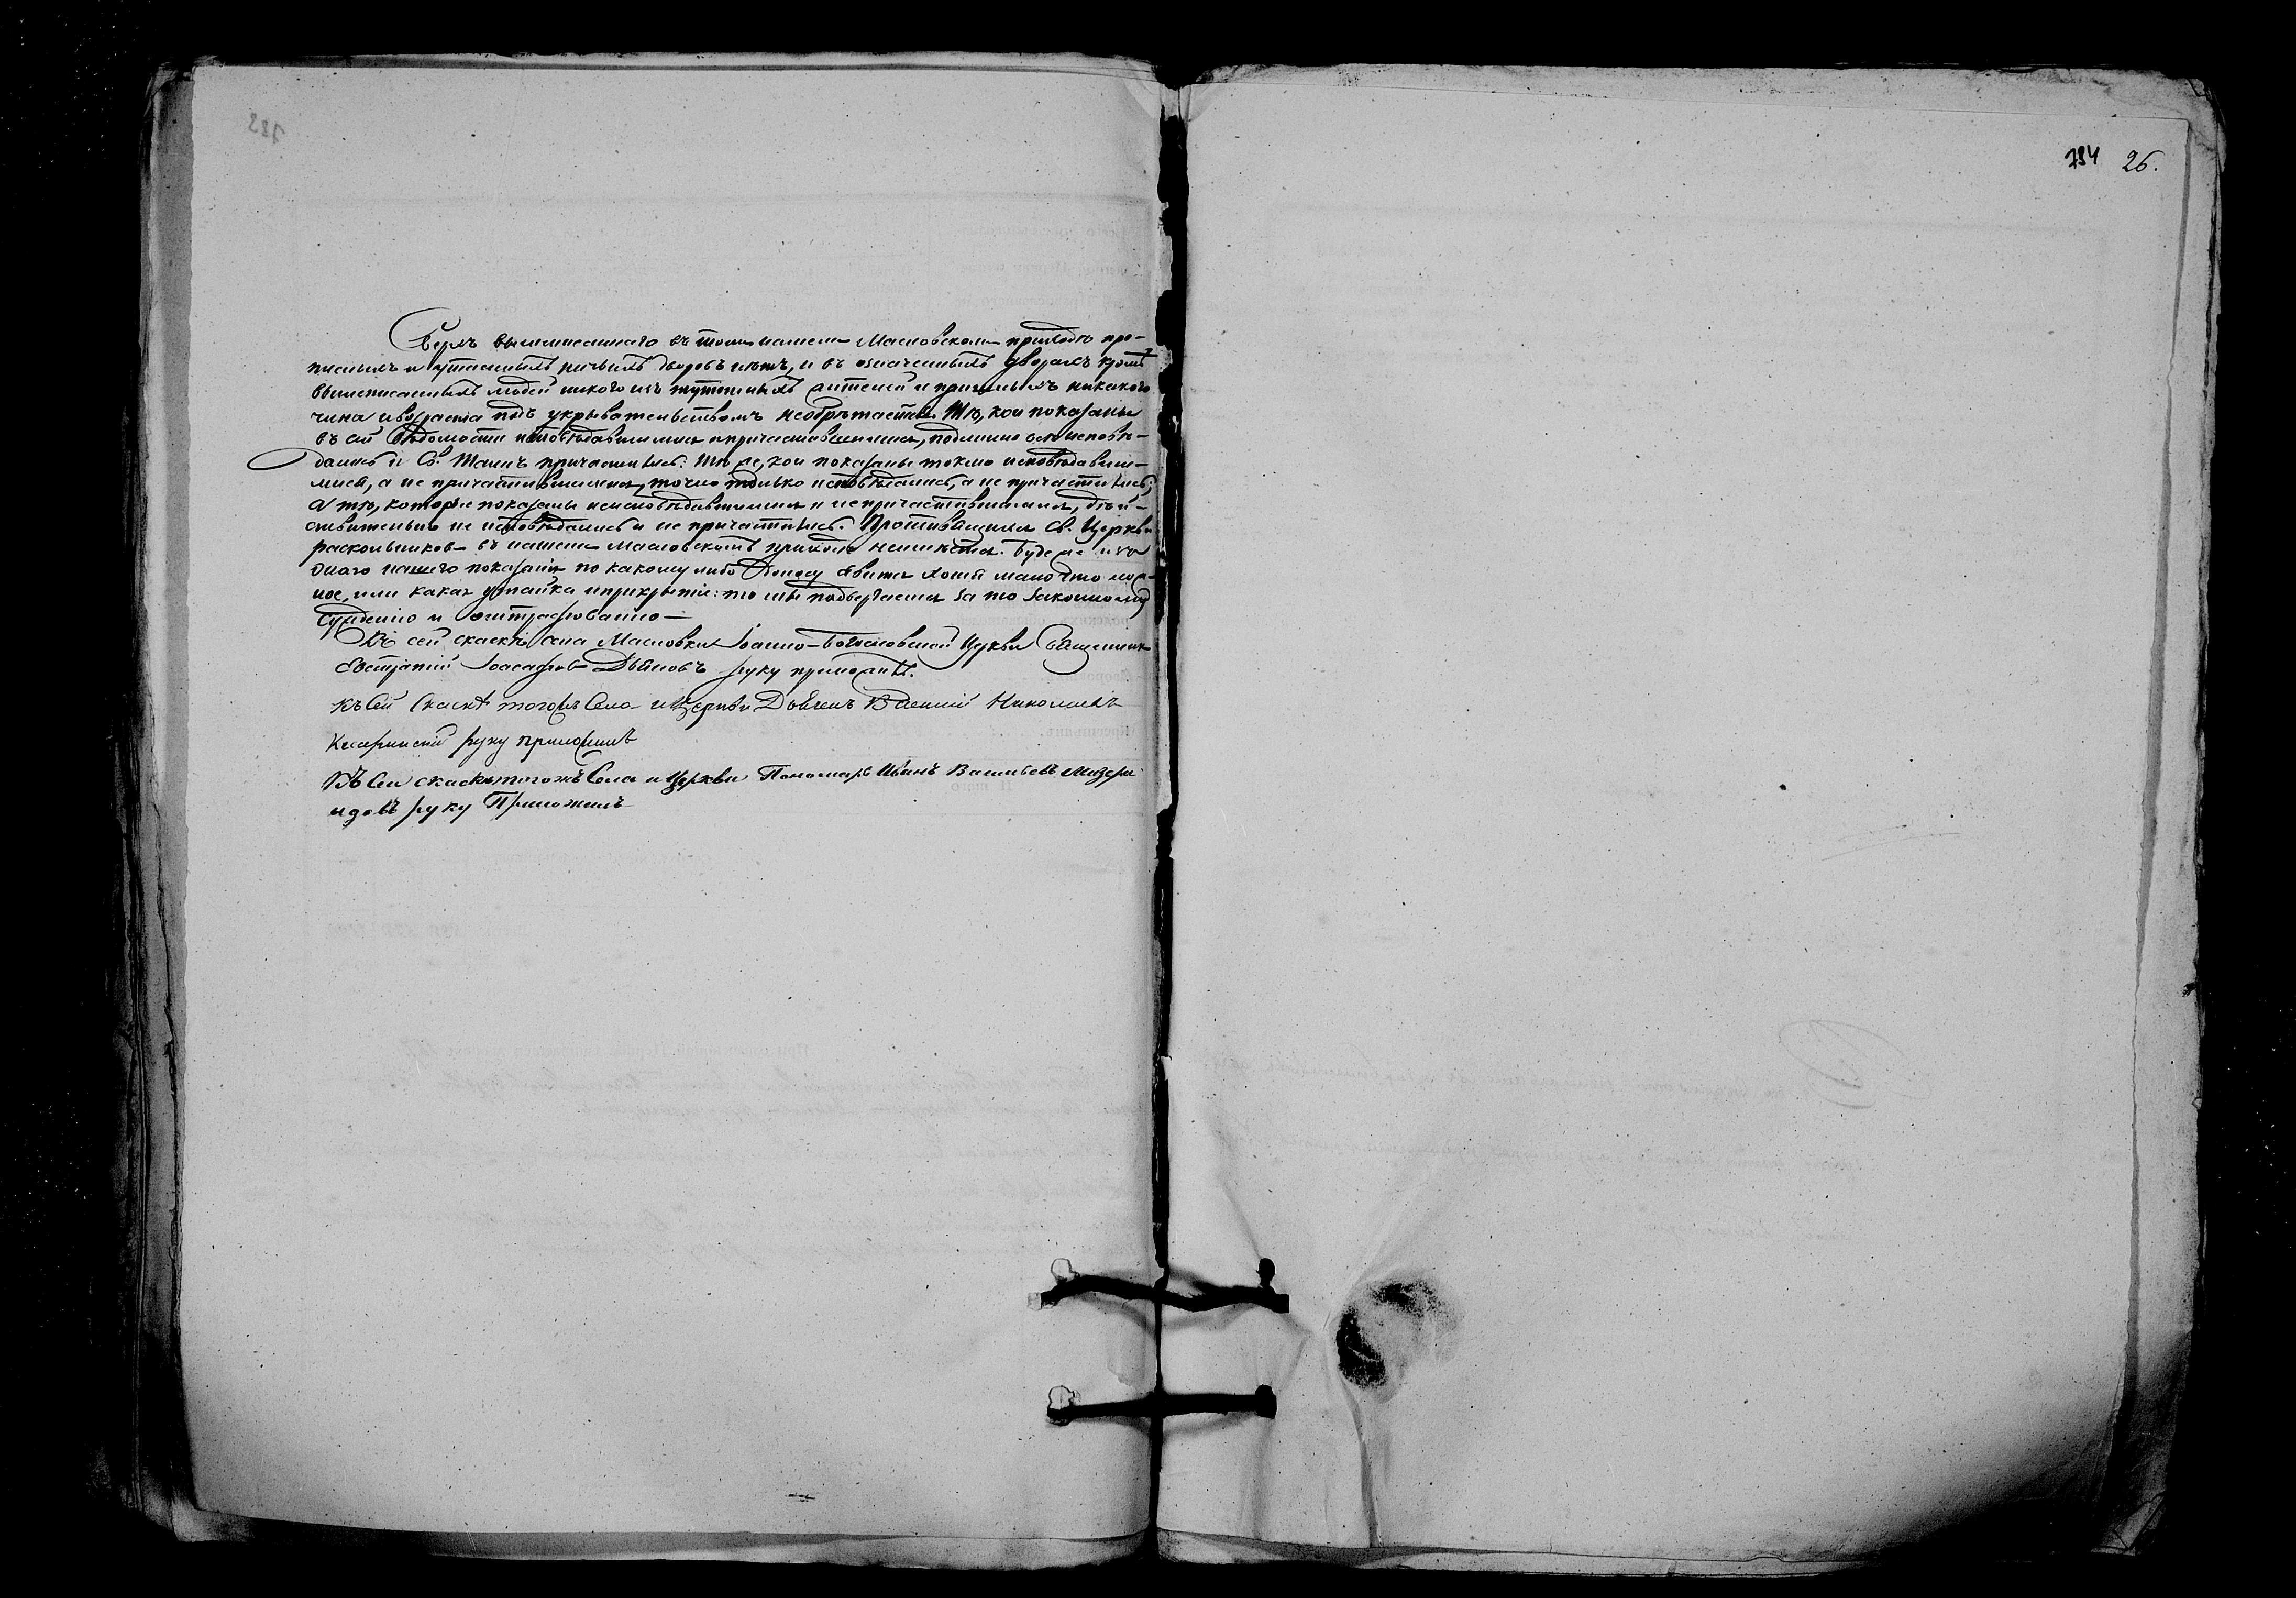 794 26.
Сверхъ вышеписаннаго въ томъ нашемъ Масловскомъ приходѣ про-
писныхъ и утаенныхъ ничьихъ дворовъ нѣтъ, и въ означенныхъ дворахъ кромѣ
вышеписанныхъ людей никого изъ тутошныхъ жителей и пришлыхъ никакого
чина и возраста подъ укрывательствомъ необрѣтается. Тѣ, кои показаны
въ сей вѣдомости исповѣдавшимися и причастившимися, подлинно все исповѣ-
дались и Св. Таинъ причастились: Тѣ же, кои показаны токмо исповѣдавши-
мися, а не причастившимися, точно только исповѣдались, а не причастились;
а тѣ, которые показаны неисповѣдавшимися и непричастившимися, дѣй-
ствительно не исповѣдались и не причастились. Противящихся Св. Церкви
раскольниковъ въ нашемъ Масловскомъ приходѣ неимѣется. Буде же изъ
онаго нашего показанія по какому либо доносу явится хотя мало что лож-
ное, или какая утайка и прикрытіе: то мы подвергаемся за то законному
сужденію и оштрафованію —
Къ сей сказкѣ села Масловки Іоанно-Богословской Церкви Священникъ
Евстратій Іоасафовъ руку приложилъ.
Къ сей сказкѣ тогожъ Села и Церкви Дьячекъ Василій Николаевъ
руку приложилъ
Къ сей сказкѣ тогожъ Села и Церкви Пономарь Иванъ Васильевъ
руку Приложилъ